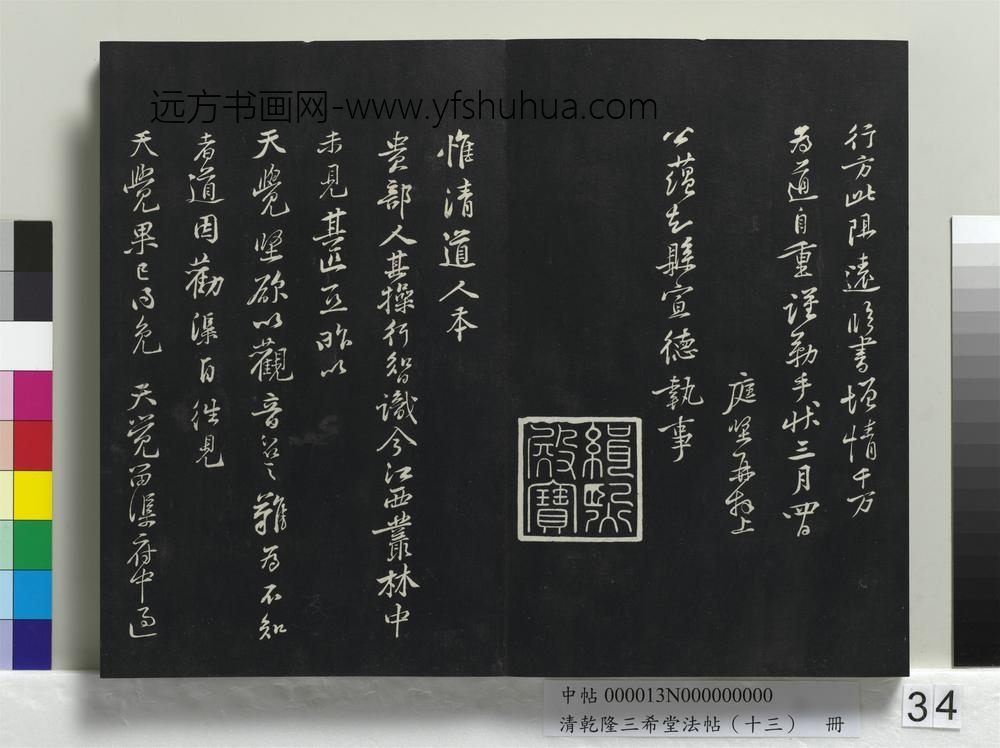 远方书画网-www.yfshuhua.com
行方此阻遠臨書增情千万
為道自重謹勒手狀三月四日
庭堅再拜上
公蘊知縣宣德執事
緝熙殿寶
惟清道人本
貴部人其操行智識今江西叢林中
未見其匹亞昨以
天覺堅欲以觀音召之難為不知
者道因勸渠自往見
天覺果已得免 天覺留渠府中過
中帖 000013N000000000
清乾隆三希堂法帖(十三) 冊
34